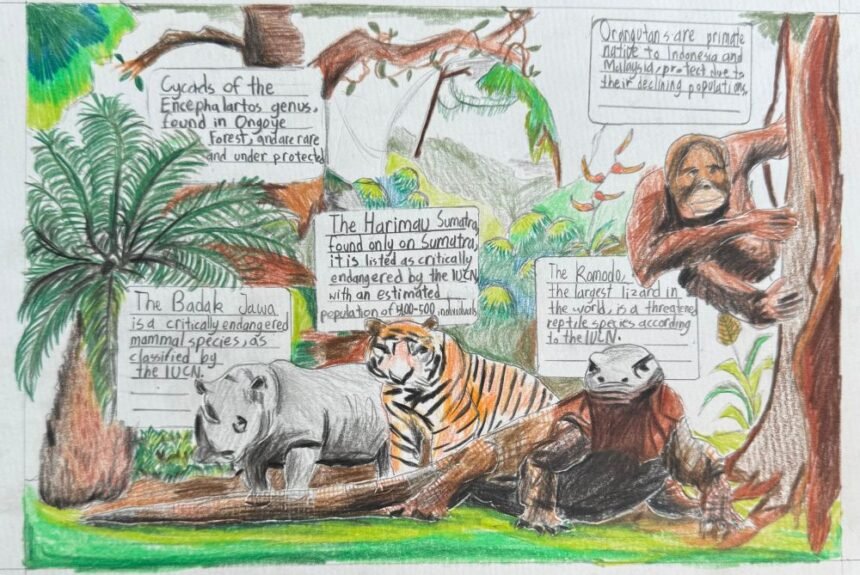 Cycads of the
Encephalartos genus,
found in Ongoye
Forest, and are rare
and under protected
Orangutans are primate
native to Indonesia and
Malaysia, protect due to
their declining populations,
The Harimau Sumatra,
found only on Sumatra,
it is listed as critically
endangered by the IUCN,
with an estimated
population of 400-500 individuals
The Komodo,
the largest lizard in
the world, is a threatened
reptile species according
to the IUCN.
The Badak Jawa
is a critically endangered
mammal species, as
classified by
the IUCN.